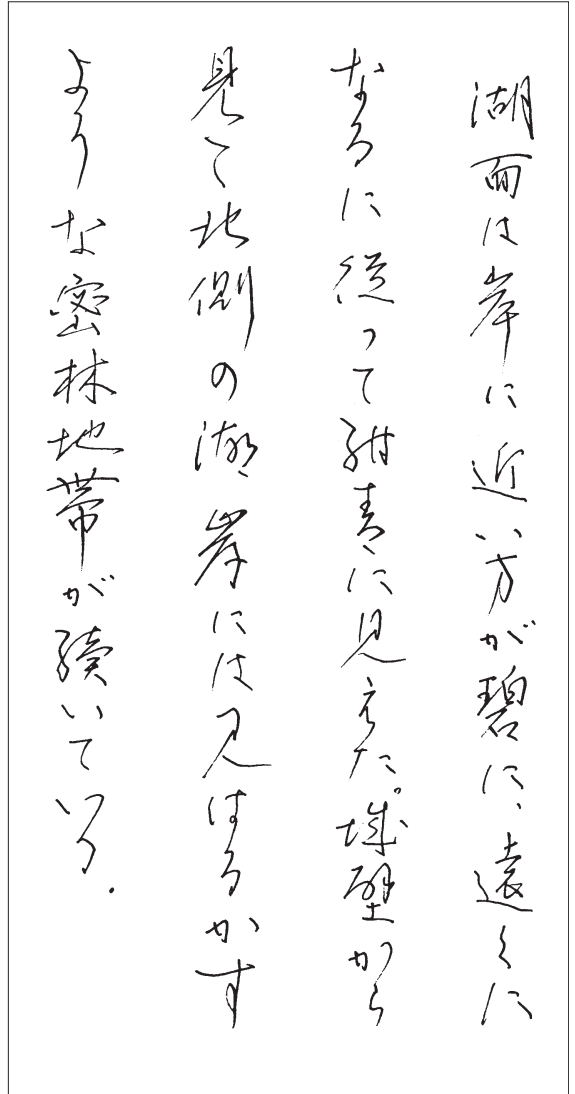 湖面は岸に近い方が碧に、遠くに
なるに従って紺青に見えた。城壁から
見て北側の湖岸には見はるかす
ような密林地帯が続いている.